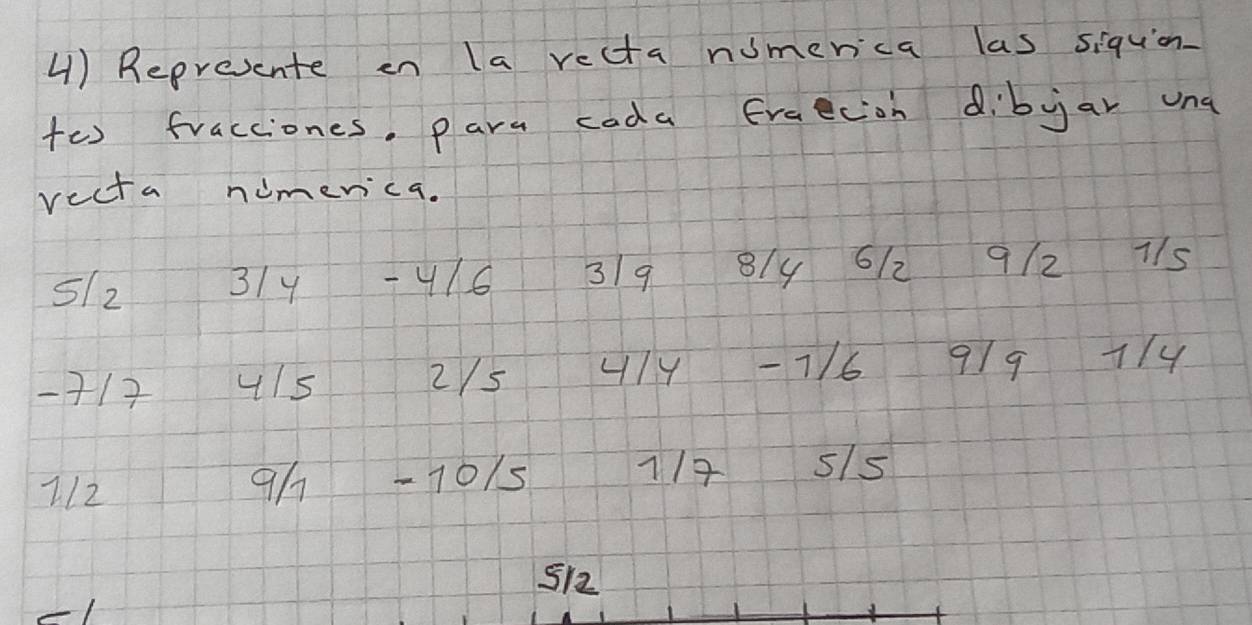 4) Represente en la recta númerica las siguien-
tes fracciones. para cada Fracción dibujar una
recta númerica.
5/2 3/4 -4/6 3/9 8/4 6/2 9/2 1/5
-7/7 4/5 2/5 4/4 -1/6 9/9 1/4
1/2 9/1 -10/5 1/7 5/5
5/2